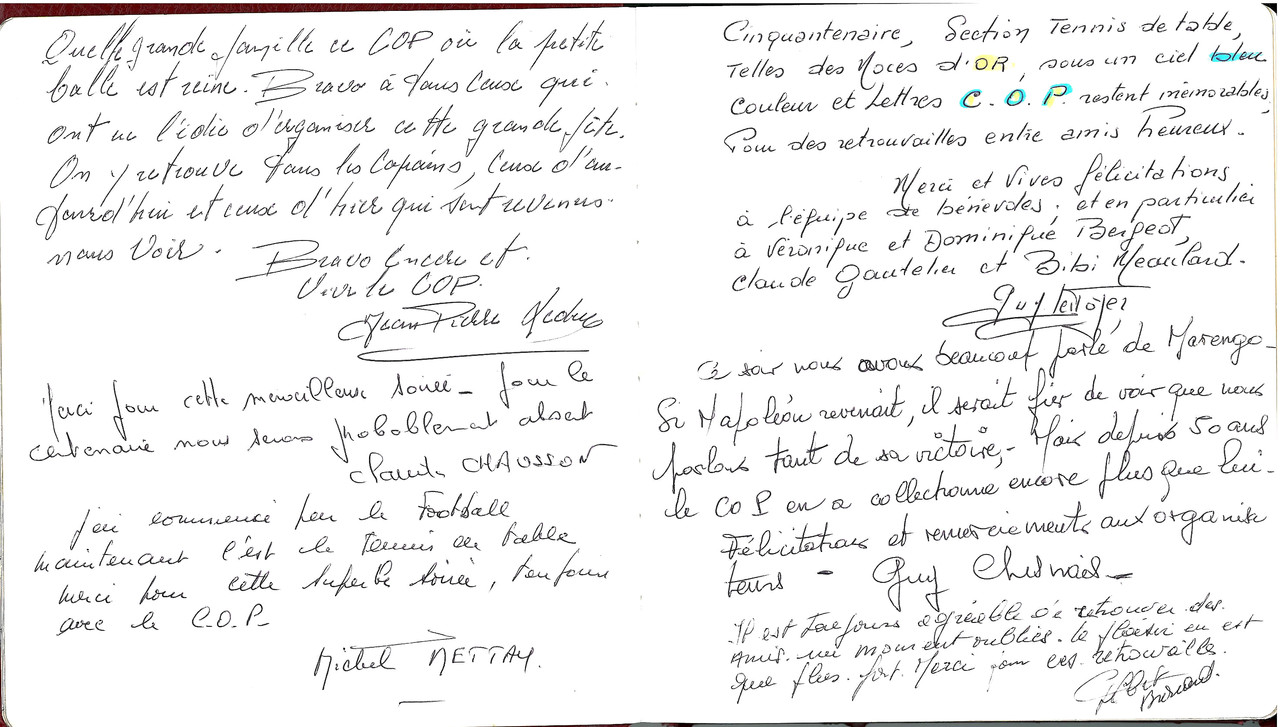 Quelle grande famille ce COP où la petite
balle est reine. Bravo à tous ceux qui
ont eu l'idée d'organiser cette grande fête.
On y retrouve tous les Copains, ceux d'au-
jourd'hui et ceux d'hier qui sont revenus
nous voir.
Bravo Encore et
Vive le COP.
Jean Pierre
Merci pour cette merveilleuse soirée - pour le
centenaire nous serons probablement absent
Claude CHAUSSON
j'ai commencé par le Football
maintenant c'est le Tennis de Table
merci pour cette superbe soirée, toujours
avec le C.O.P-
Michel METTAY.
Cinquantenaire, Section Tennis de table,
Telles des Noces d'OR, sous un ciel bleu
Couleur et Lettres C.O.P. restent mémorables,
Pour des retrouvailles entre amis heureux.
Merci et Vives félicitations
à l'équipe de bénévoles, et en particulier
à Véronique et Dominique Bergeot,
Claude Gautelier et Bibi Meaulard.
Guy
Ce soir nous avons beaucoup parlé de Marengo-
Si Napoléon revenait, il serait fier de voir que nous
parlons tant de sa victoire,- Mais depuis 50 ans
le COP en a collectionné encore plus que lui-
Félicitations et remerciements aux organisa
teurs - Guy Chesnais-
Il est toujours agréable de retrouver des
Amis. un moment oubliés. le plaisir en est
que plus. fort. Merci pour ces. retrouvailles.